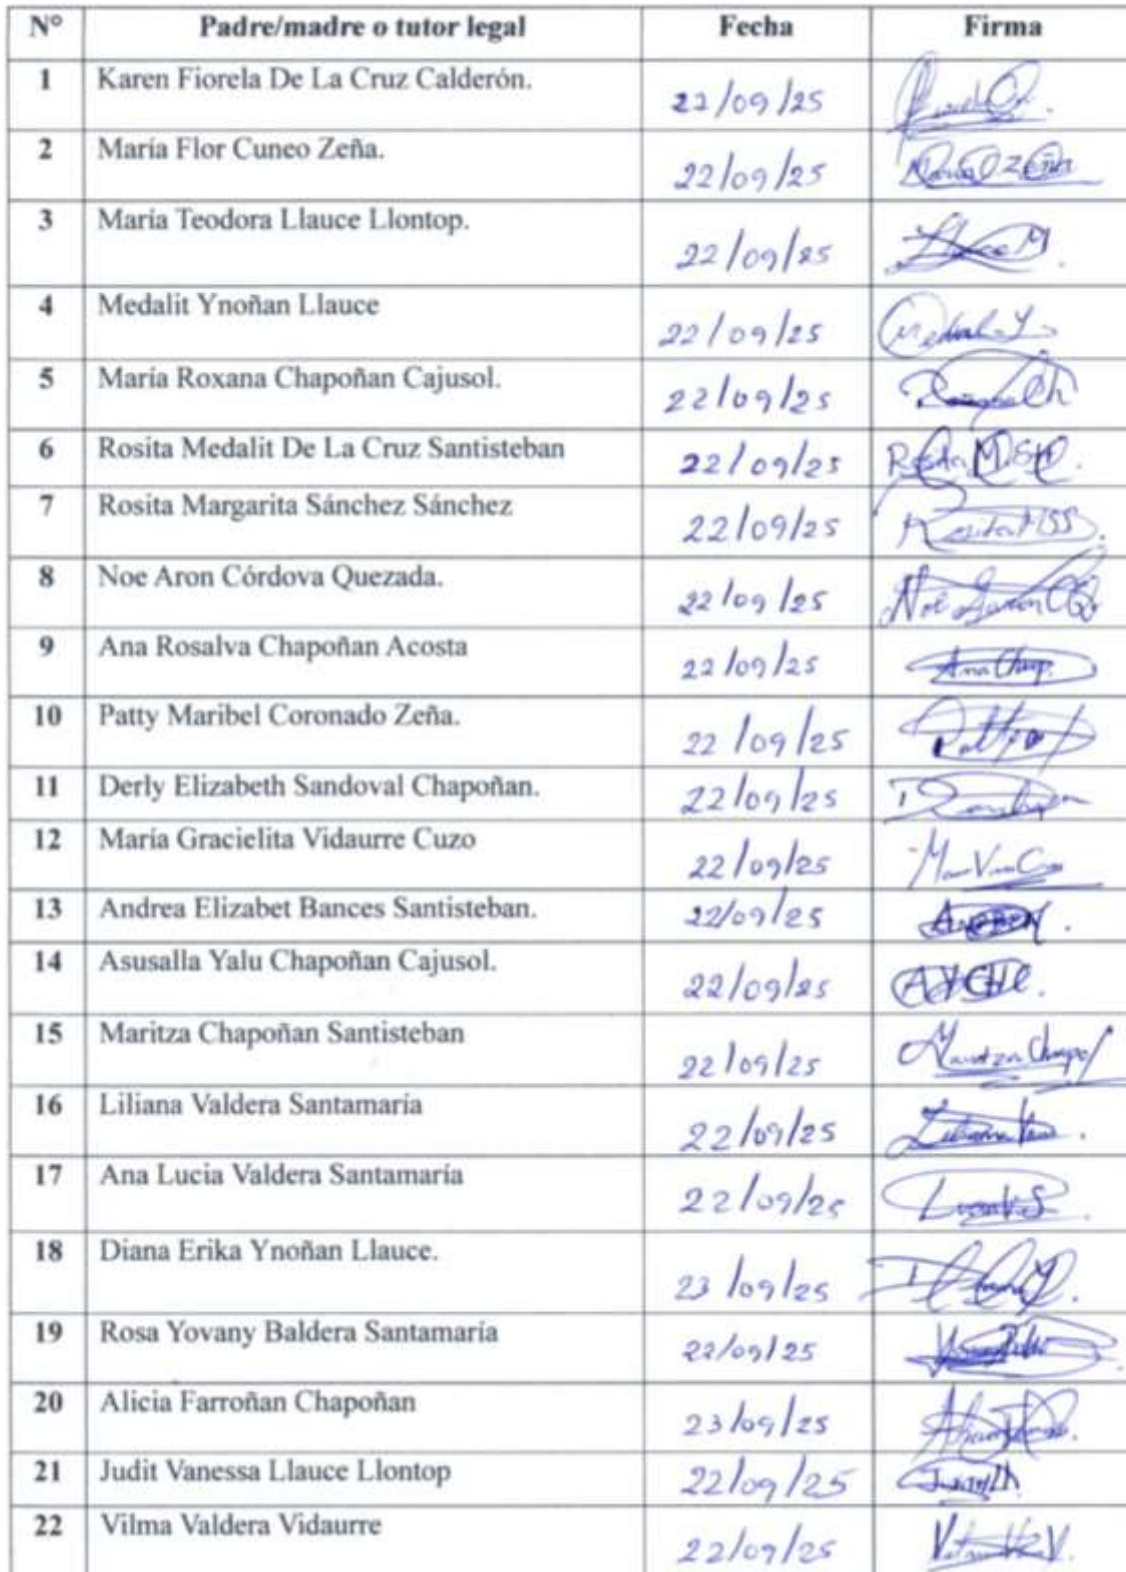 N° Padre/madre o tutor legal Fecha Firma
1 Karen Fiorela De La Cruz Calderón. 22/09/25
2 María Flor Cuneo Zeña. 22/09/25
3 María Teodora Llauce Llontop. 22/09/25 Llauce M.
4 Medalit Ynoñan Llauce 22/09/25 Medalit Y
5 María Roxana Chapoñan Cajusol. 22/09/25 Roxana Ch
6 Rosita Medalit De La Cruz Santisteban 22/09/25
7 Rosita Margarita Sánchez Sánchez 22/09/25 Rosita MSS
8 Noe Aron Córdova Quezada. 22/09/25 Noé Aron CQ.
9 Ana Rosalva Chapoñan Acosta 22/09/25 Ana Chap.
10 Patty Maribel Coronado Zeña. 22/09/25
11 Derly Elizabeth Sandoval Chapoñan. 22/09/25
12 María Gracielita Vidaurre Cuzo 22/09/25
13 Andrea Elizabet Bances Santisteban. 22/09/25
14 Asusalla Yalu Chapoñan Cajusol. 22/09/25 AYCHC.
15 Maritza Chapoñan Santisteban 22/09/25 Maritza Chapo
16 Liliana Valdera Santamaría 22/09/25
17 Ana Lucia Valdera Santamaría 22/09/25
18 Diana Erika Ynoñan Llauce. 23/09/25
19 Rosa Yovany Baldera Santamaría 22/09/25
20 Alicia Farroñan Chapoñan 23/09/25
21 Judit Vanessa Llauce Llontop 22/09/25
22 Vilma Valdera Vidaurre 22/09/25